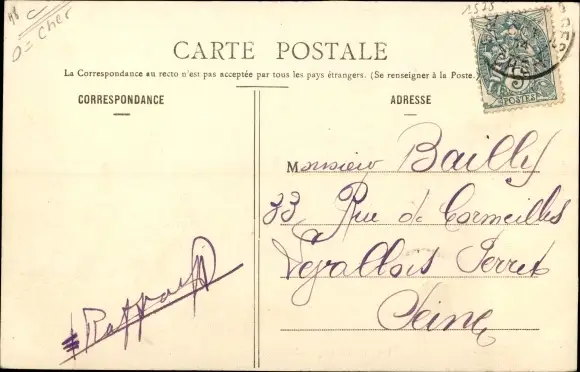 48 C
O = Cher
1525
CARTE POSTALE
La Correspondance au recto n'est pas acceptée par tous les pays étrangers. (Se renseigner à la Poste.)
CORRESPONDANCE
ADRESSE
Monsieur Bailly
33 Rue de Cormeilles
Levallois Perret
Seine
5
POSTES
CHER